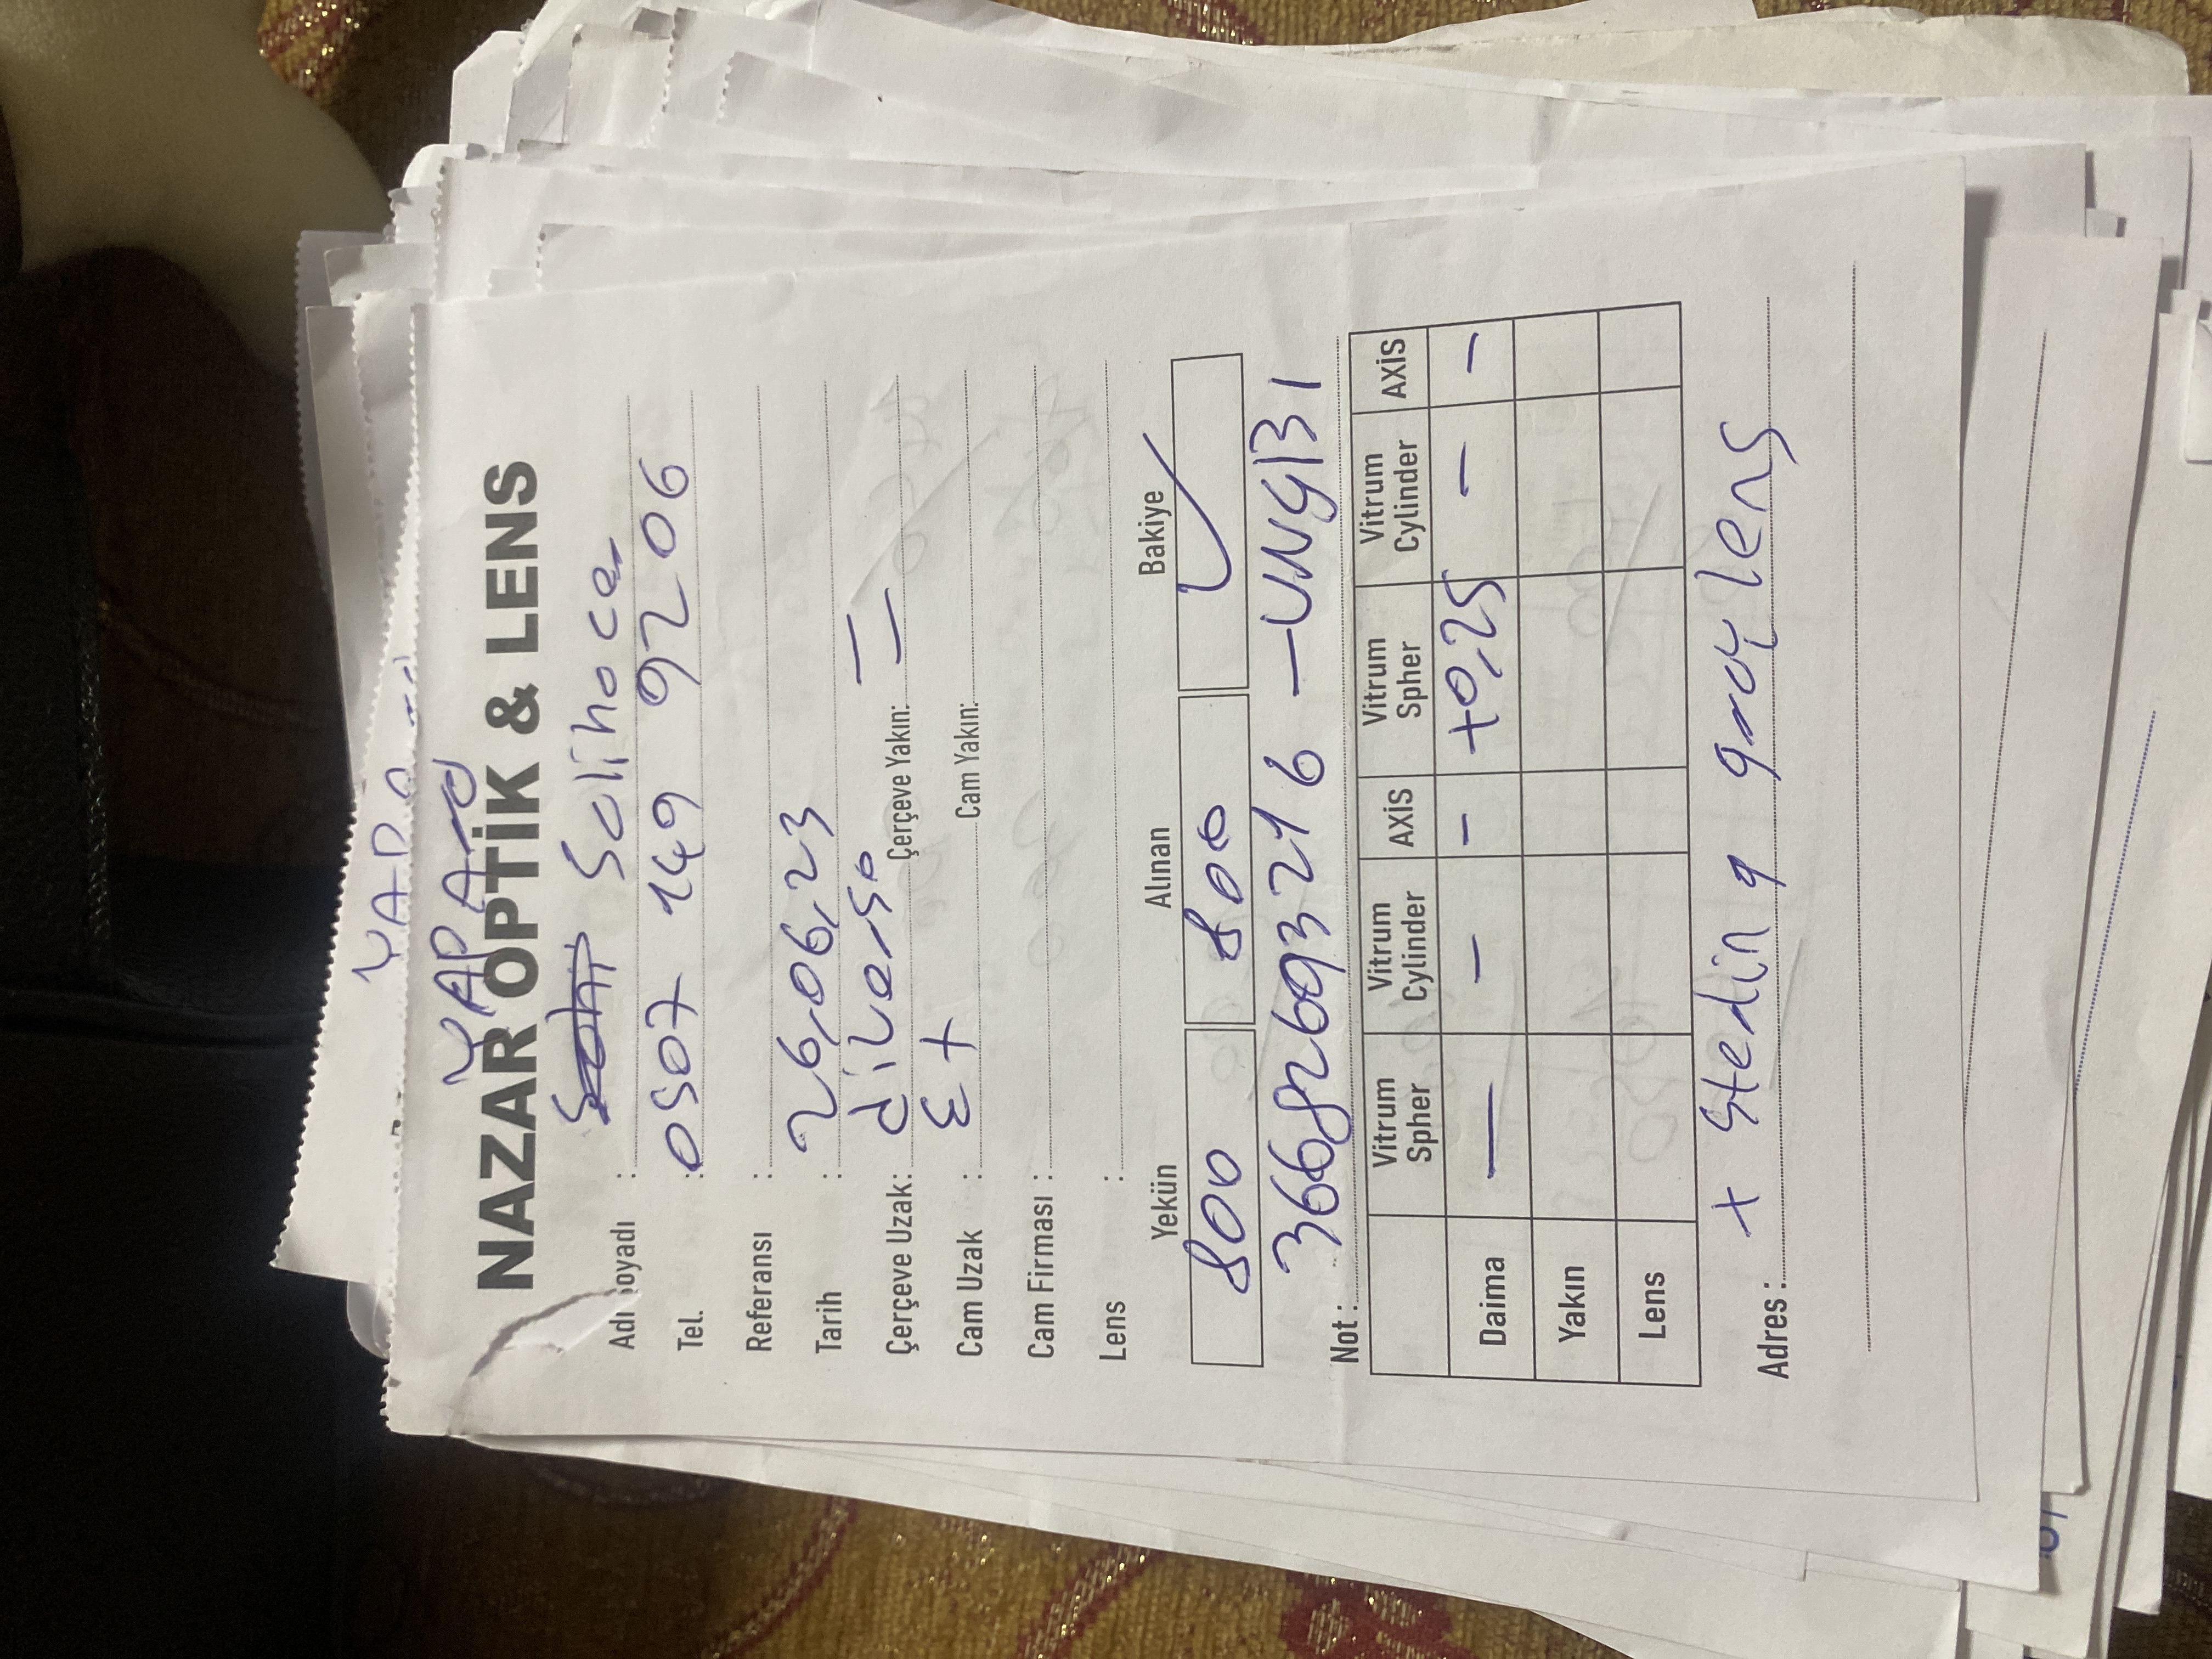 YAPArd
NAZAR OPTİK & LENS
Adı Soyadı : Salihoca
Tel. : 0507 149 9206
Referansı :
Tarih : 26,06,23
Çerçeve Uzak: diverso Çerçeve Yakın: =
Cam Uzak : E+ Cam Yakın:
Cam Firması :
Lens :
Yekün Alınan Bakiye
800 800 ✓
Not : 36682693216 - UNGIB1
Vitrum Spher Vitrum Cylinder AXİS Vitrum Spher Vitrum Cylinder AXİS
Daima — - - +0,25 - -
Yakın
Lens
Adres : + lens